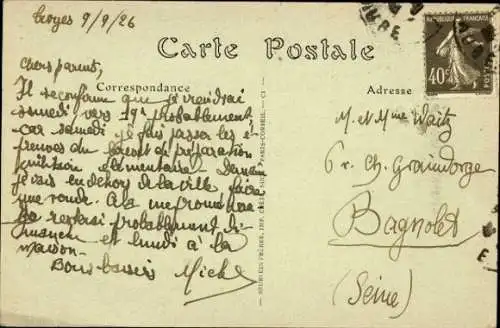 Troyes 9/9/26
Carte Postale
RÉPUBLIQUE FRANÇAISE
40c
POSTES
Correspondance
Adresse
Chers parents,
Il se confirme que je viendrai
samedi vers 19h probablement
car samedi je fais passer les é-
preuves du brevet de préparation
militaire élémentaire. Demain
je vais en dehors de la ville, faire
une ronde. À la
probablement di-
manche et lundi à la
maison.
Bons baisers Michel
M. et Mme Waitz
6 r. Ch. Graindorge
Bagnolet
(Seine)